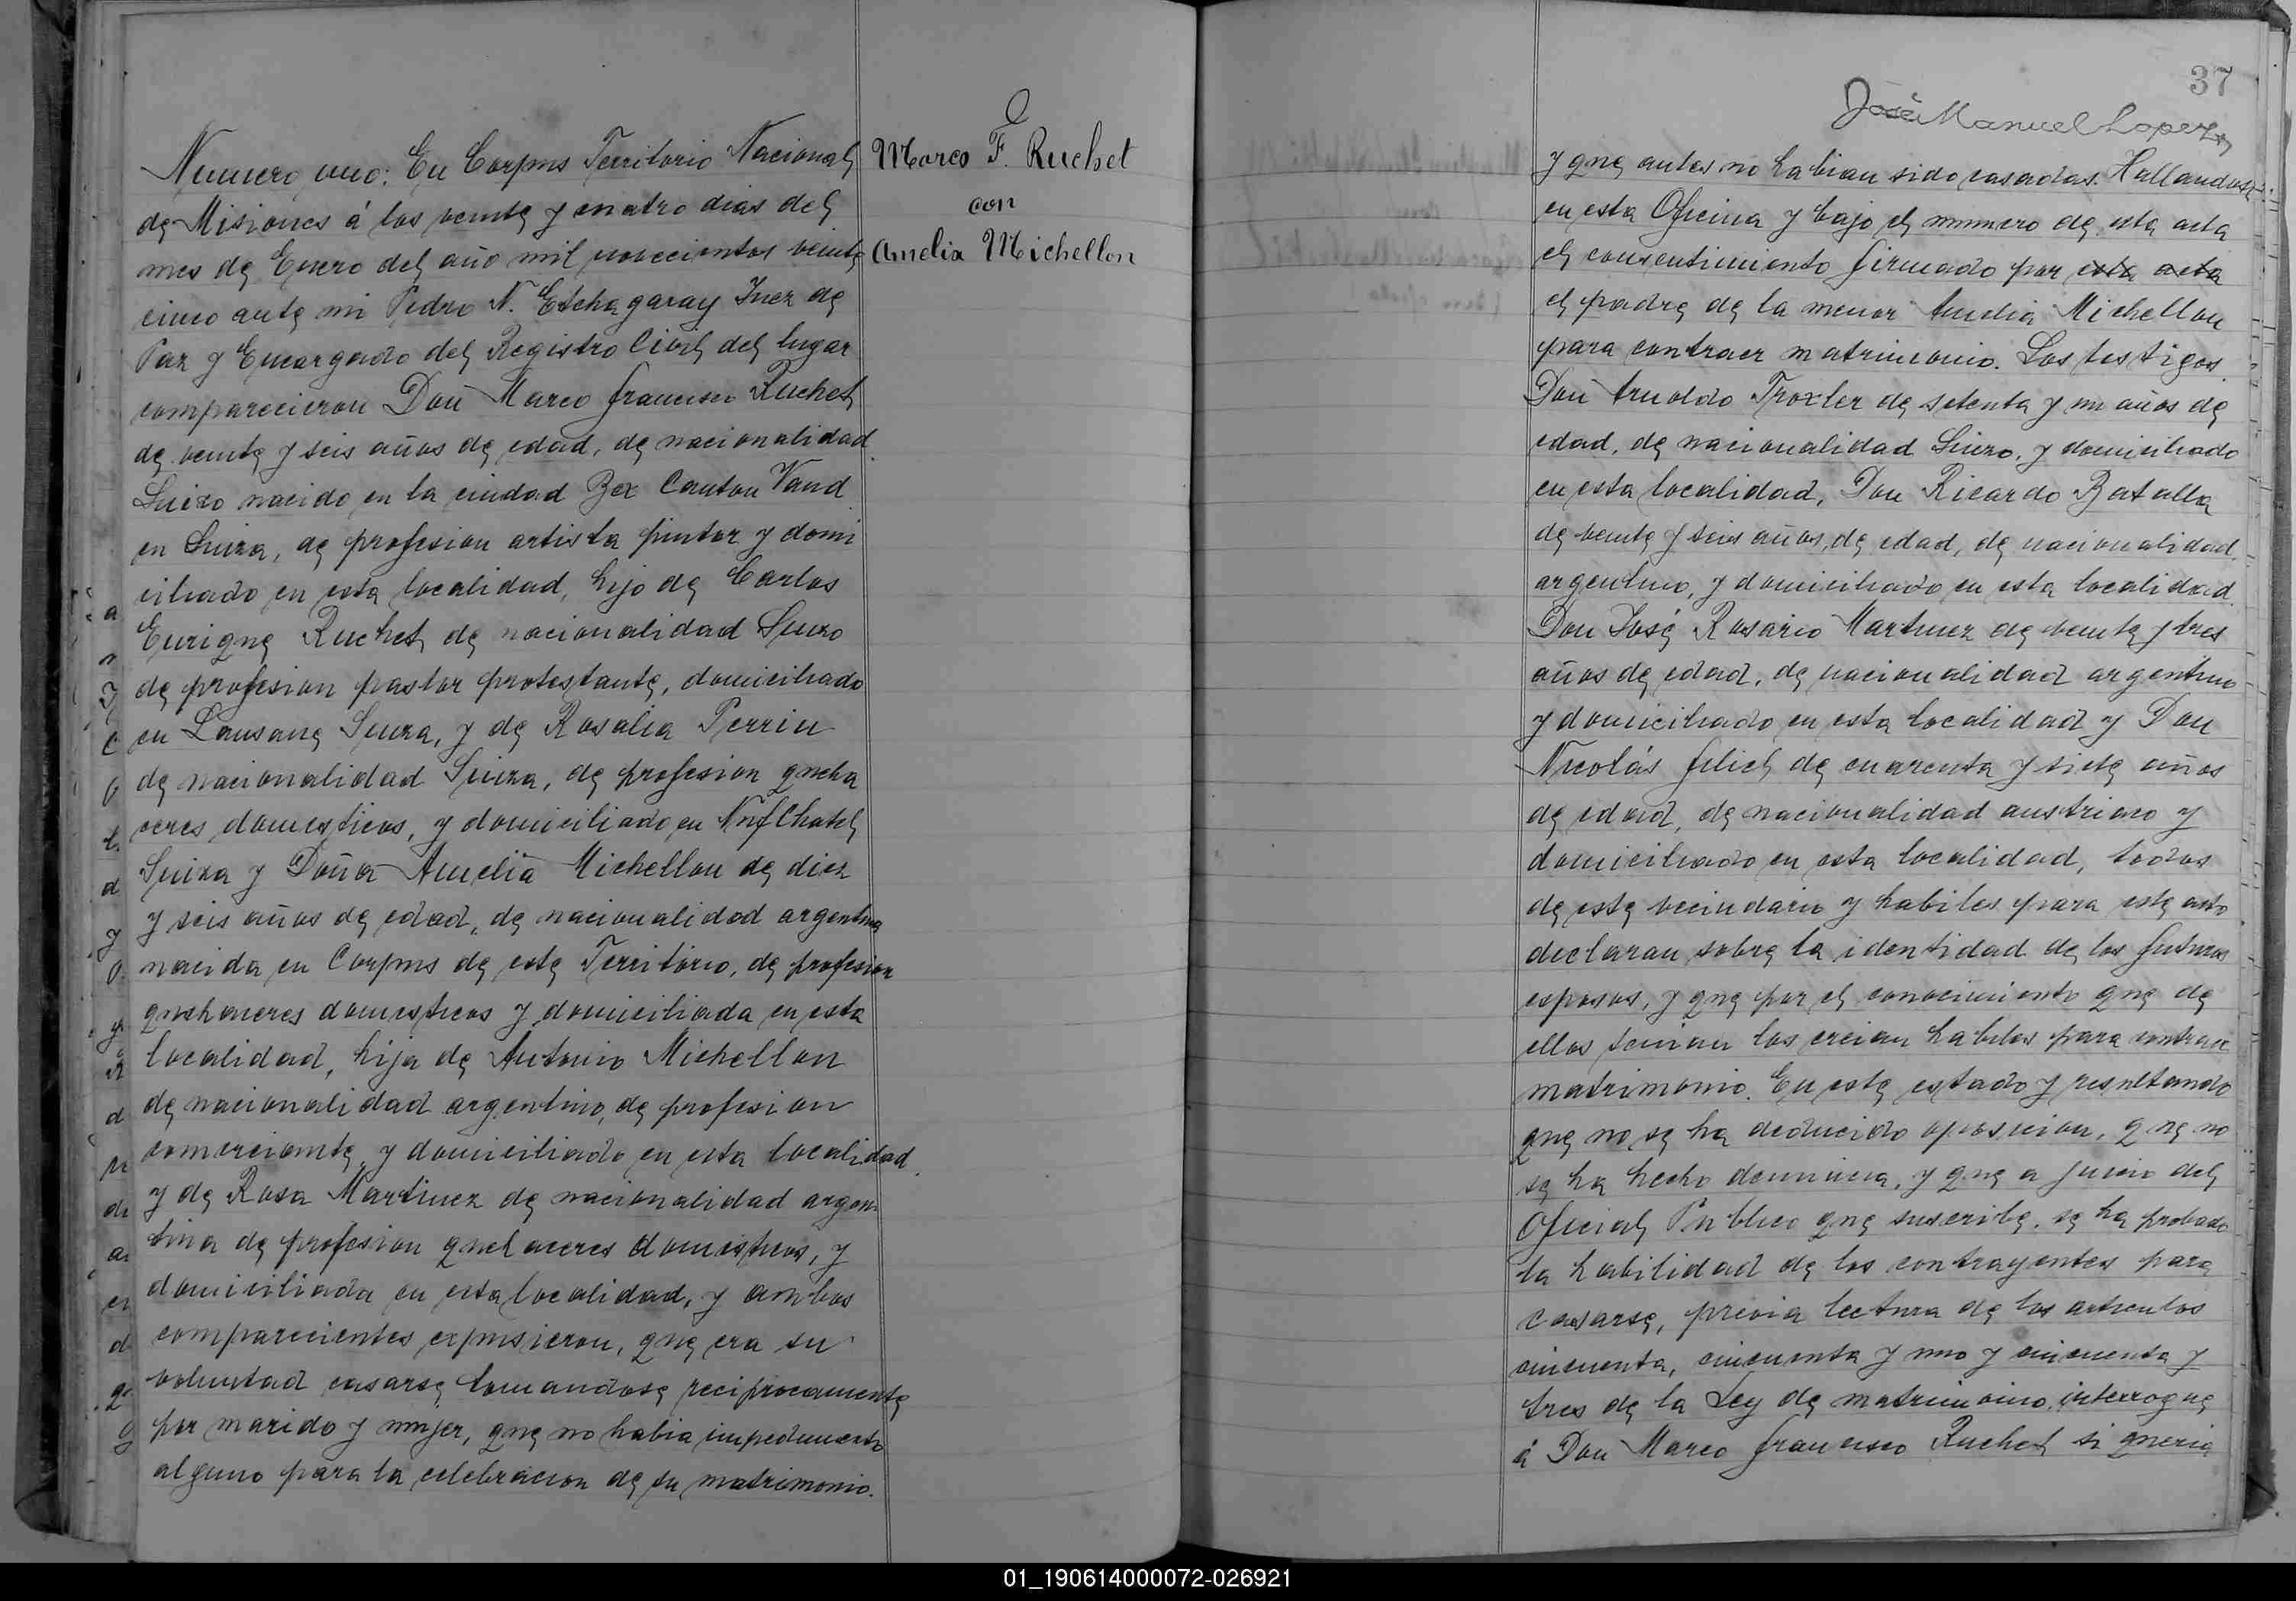 Numero uno: En Corpus Territorio Nacional
de Misiones á los veinte y cuatro dias del
mes de Enero del año mil novecientos veinte
cinco ante mi Pedro N. Etchagaray Juez de
Paz y Encargado del Registro Civil del lugar
comparecieron Don Marco Francisco Ruchet
de veinte y seis años de edad, de nacionalidad
Suizo nacido en la ciudad Bex Canton Vaud
en Suiza, de profesion artista pintor y domi
ciliado en esta localidad, hijo de Carlos
Enrique Ruchet de nacionalidad Suizo
de profesion pastor protestante, domiciliado
en Lausane Suiza, y de Rosalia Perrin
de nacionalidad Suiza, de profesion queha
ceres domesticos, y domiciliado en Nufchatel
Suiza y Doña Amelia Michellon de diez
y seis años de edad, de nacionalidad argentina
nacida en Corpus de este Territorio, de profesion
quehaceres domesticos y domiciliada en esta
localidad, hija de Antonio Michellon
de nacionalidad argentino, de profesion
comerciante y domiciliado en esta localidad
y de Rosa Martinez de nacionalidad argen
tina de profesion quehaceres domesticos, y
domiciliada en esta localidad, y ambos
comparecientes expusieron, que era su
voluntad casarse tomandose reciprocamente
por marido y mujer, que no habia impedimento
alguno para la celebracion de su matrimonio.
Marco F. Ruchet
con
Amelia Michellon
37
José Manuel Lopez
y que antes no habian sido casados. Hallandose
en esta Oficina y bajo el numero de esta acta
el consentimiento firmado por esta acta
el padre de la menor Amelia Michellon
para contraer matrimonio. Los testigos
Don Arnoldo Troxler de setenta y un años de
edad, de nacionalidad Suizo, y domiciliado
en esta localidad, Don Ricardo Batalla
de veinte y seis años, de edad, de nacionalidad
argentino, y domiciliado en esta localidad
Don José Rosario Martinez de veinte y tres
años de edad, de nacionalidad argentino
y domiciliado en esta localidad y Don
Nicolás Filich de cuarenta y siete años
de edad, de nacionalidad austriaco y
domiciliado en esta localidad, todos
de este vecindario y habiles para este acto
declaran sobre la identidad de los futuros
esposos, y que por el conocimiento que de
ellos tenian los creian habiles para contraer
matrimonio. En este estado y resultando
que no se ha deducido oposicion, que no
se ha hecho denuncia, y que a juicio del
Oficial Publico que suscribe, se ha probado
la habilidad de los contrayentes para
casarse, previa lectura de los articulos
cincuenta, cincuenta y uno y cincuenta y
tres de la Ley de matrimonio, interrogue
á Don Marco Francisco Ruchet si queria
01_190614000072-026921